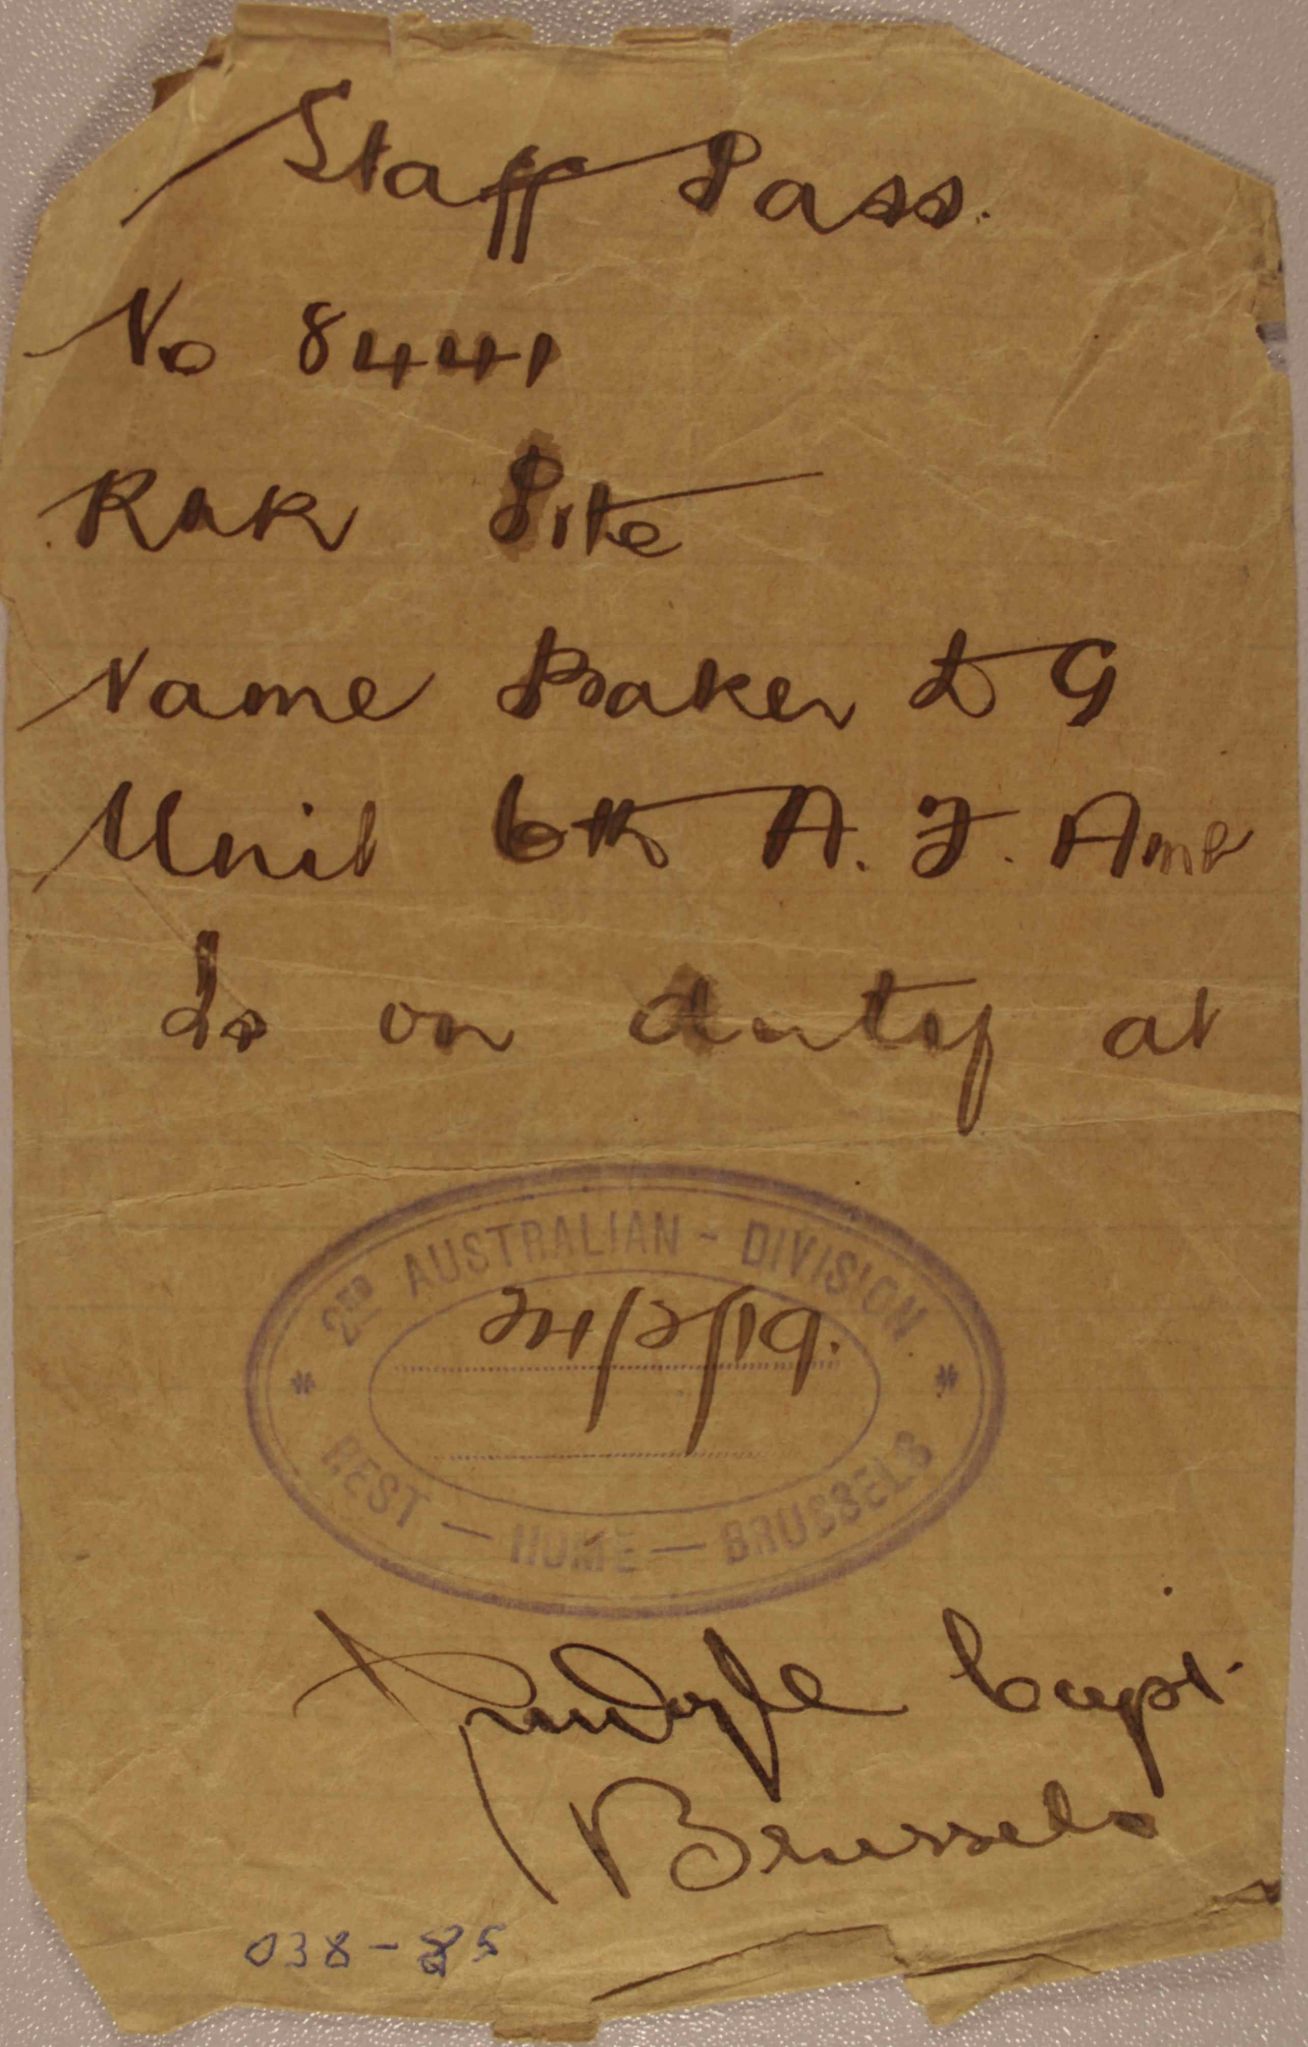 Staff Pass.
No 8441
Rnk Pite
Name Baker D G
Unit 6th A. F. Amb
Is on duty at
2ND AUSTRALIAN - DIVISION
24/2/19.
REST — HOME — BRUSSELS
Capt.
Brussels
038-85